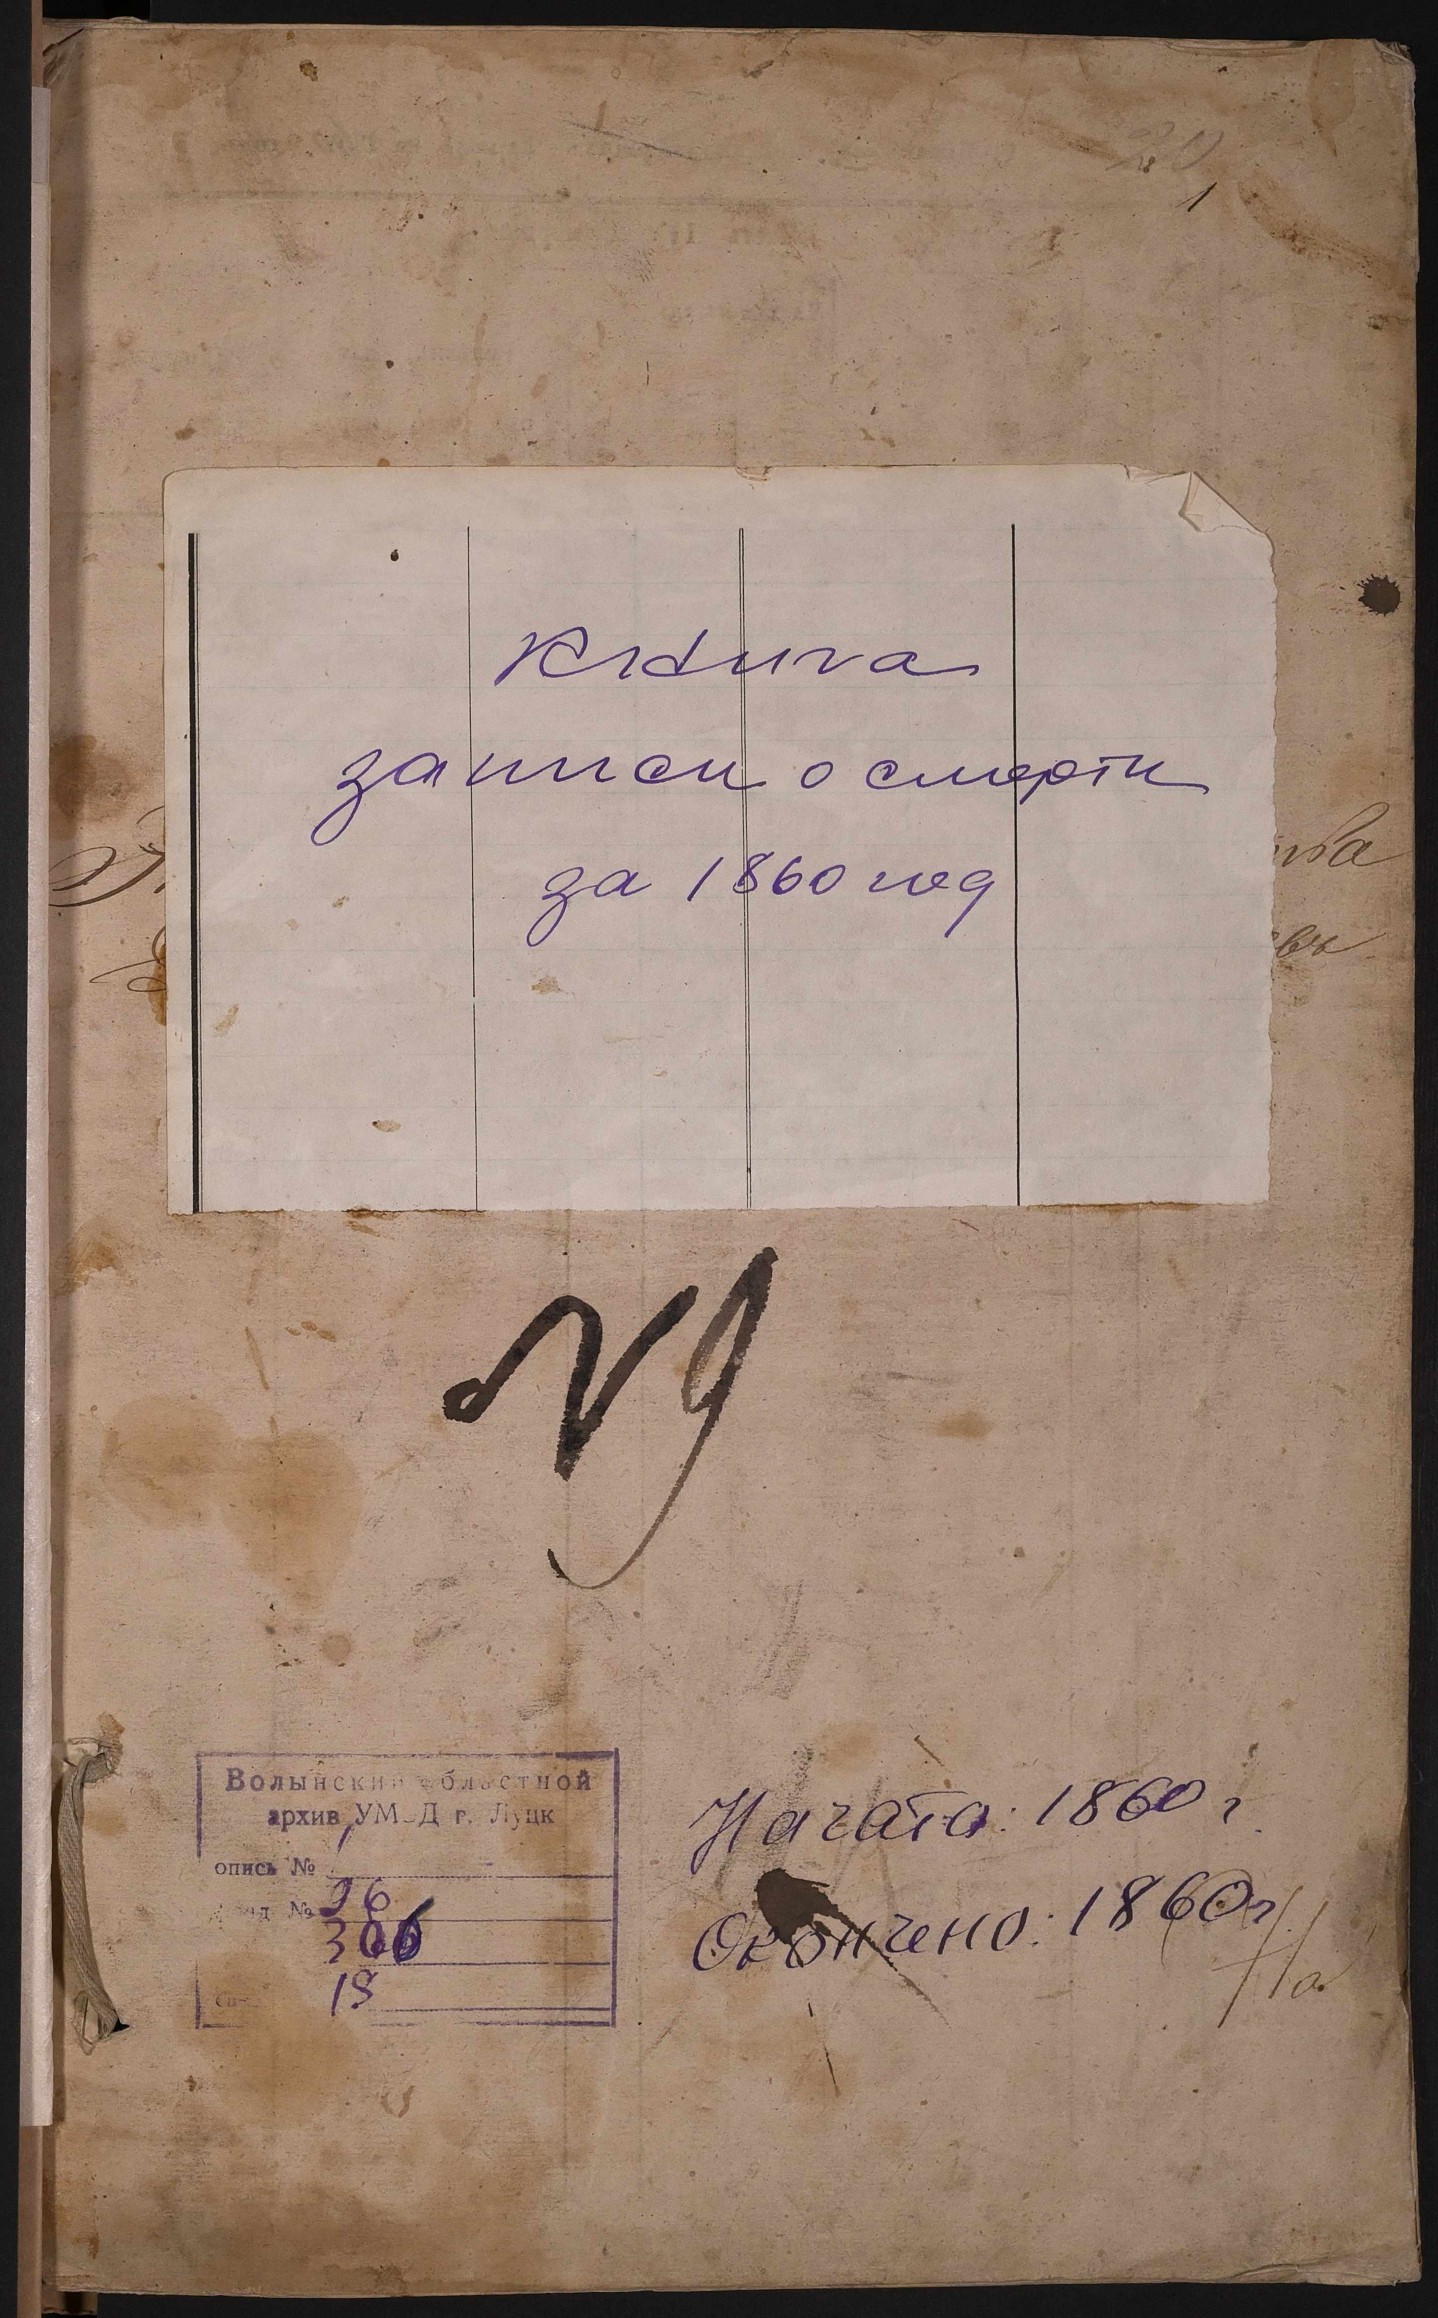 20
1
Книга
записи о смерти
за 1860 год
№ 9
Волынский областной
архив УМВД г. Луцк
опись № 1
фонд № 36
306
18
Начата: 1860 г.
Окончено: 1860 г.
На